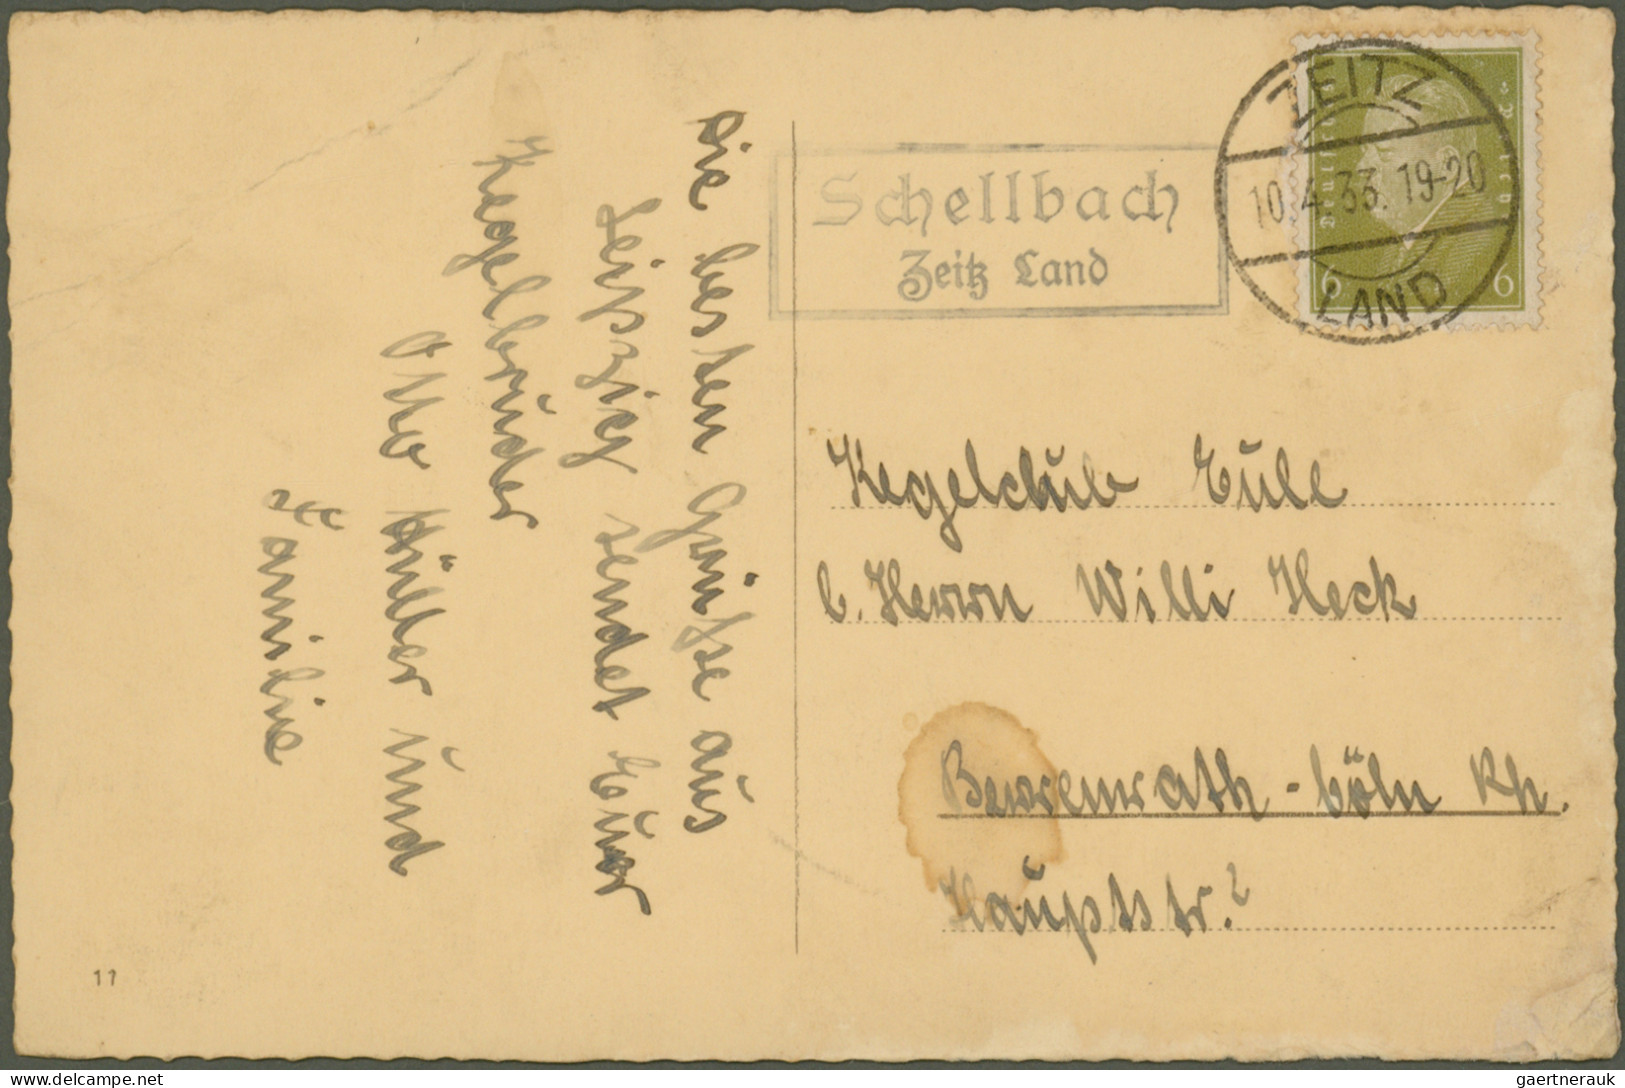 Die besten Grüße aus
Leipzig sendet Euer
Kegelbruder
Otto Müller und
Familie
11
Schellbach
Zeitz Land
ZEITZ
10.4.33.19-20
LAND
6
6
Kegelclub Eule
b. Herrn Willi Heck
Berrenrath - Cöln Rh.
Hauptstr.?
gaertnerauk